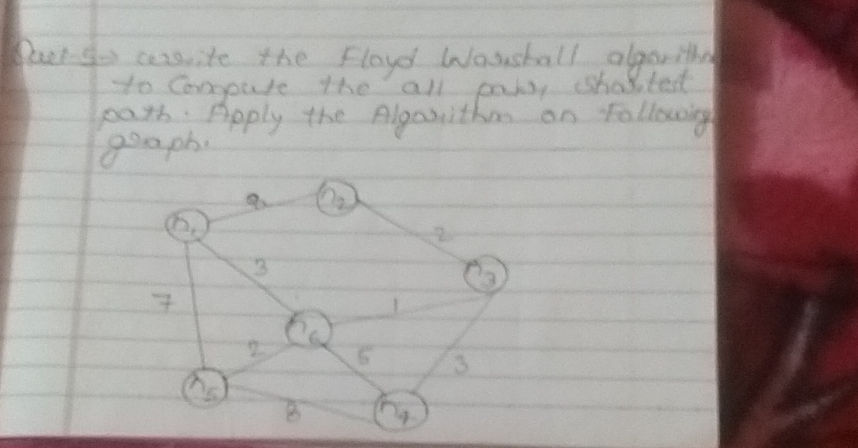 Quest 5→ cerrite the Floyd Warshall algorithm
to Compute the all pairs, shortest
path. Apply the Algorithm on Following
graph.
n2
9
n1
2
3
n3
7
1
n6
2
6
3
n5
8
n4